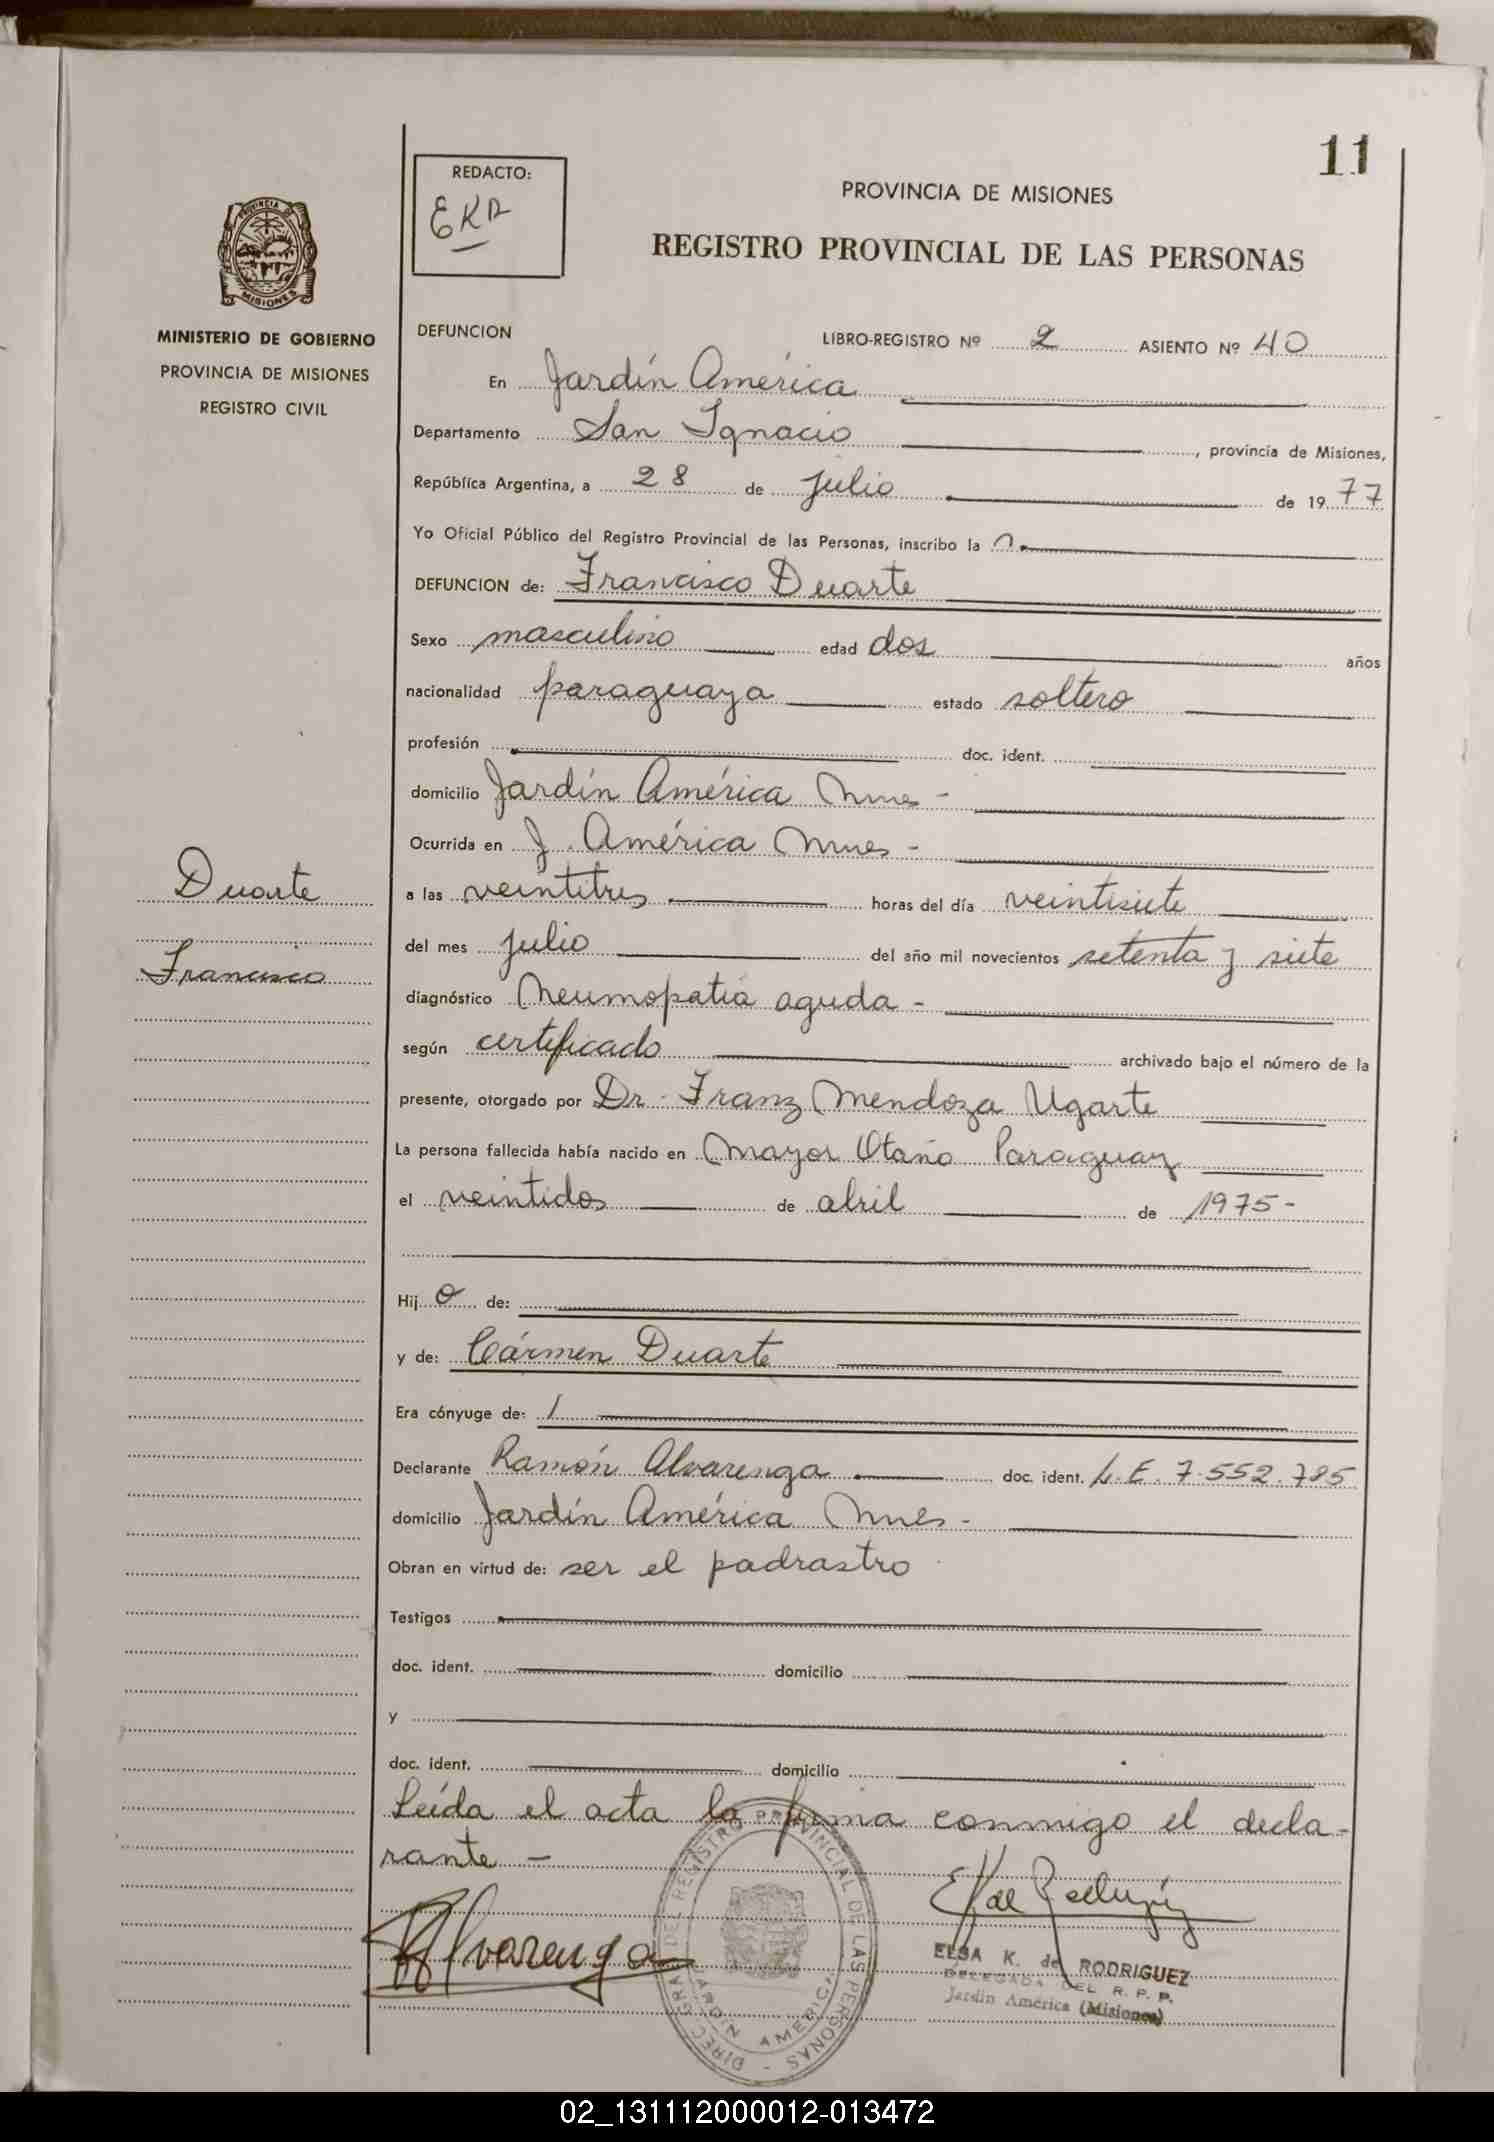 11
REDACTO:
EKR
PROVINCIA DE MISIONES
REGISTRO PROVINCIAL DE LAS PERSONAS
PROVINCIA DE
MISIONES
MINISTERIO DE GOBIERNO
PROVINCIA DE MISIONES
REGISTRO CIVIL
DEFUNCION LIBRO-REGISTRO Nº 2 ASIENTO Nº 40
En Jardín América
Departamento San Ignacio, provincia de Misiones,
República Argentina, a 28 de julio de 1977
Yo Oficial Público del Registro Provincial de las Personas, inscribo la
DEFUNCION de: Francisco Duarte
Sexo masculino edad dos años
nacionalidad paraguaya estado soltero
profesión doc. ident.
domicilio Jardín América Mnes -
Ocurrida en J. América Mnes -
Duarte
Francisco
a las veintitres horas del día veintisiete
del mes julio del año mil novecientos setenta y siete
diagnóstico Neumopatía aguda -
según certificado archivado bajo el número de la
presente, otorgado por Dr. Franz Mendoza Ugarte
La persona fallecida había nacido en Mayor Otaño Paraguay
el veintidos de abril de 1975 -
Hij o de:
y de: Cármen Duarte
Era cónyuge de: /
Declarante Ramón Alvarenga doc. ident. L.E. 7.552.785
domicilio Jardín América Mnes -
Obran en virtud de: ser el padrastro
Testigos
doc. ident. domicilio
y
doc. ident. domicilio
Leída el acta la firma conmigo el decla-
rante -
RAlvarenga
DIREC. GRAL. DEL REGISTRO PROVINCIAL DE LAS PERSONAS -
JARDIN AMERICA
ELSA K. de RODRIGUEZ
DELEGADA DEL R. P. P.
Jardín América (Misiones)
02_131112000012-013472